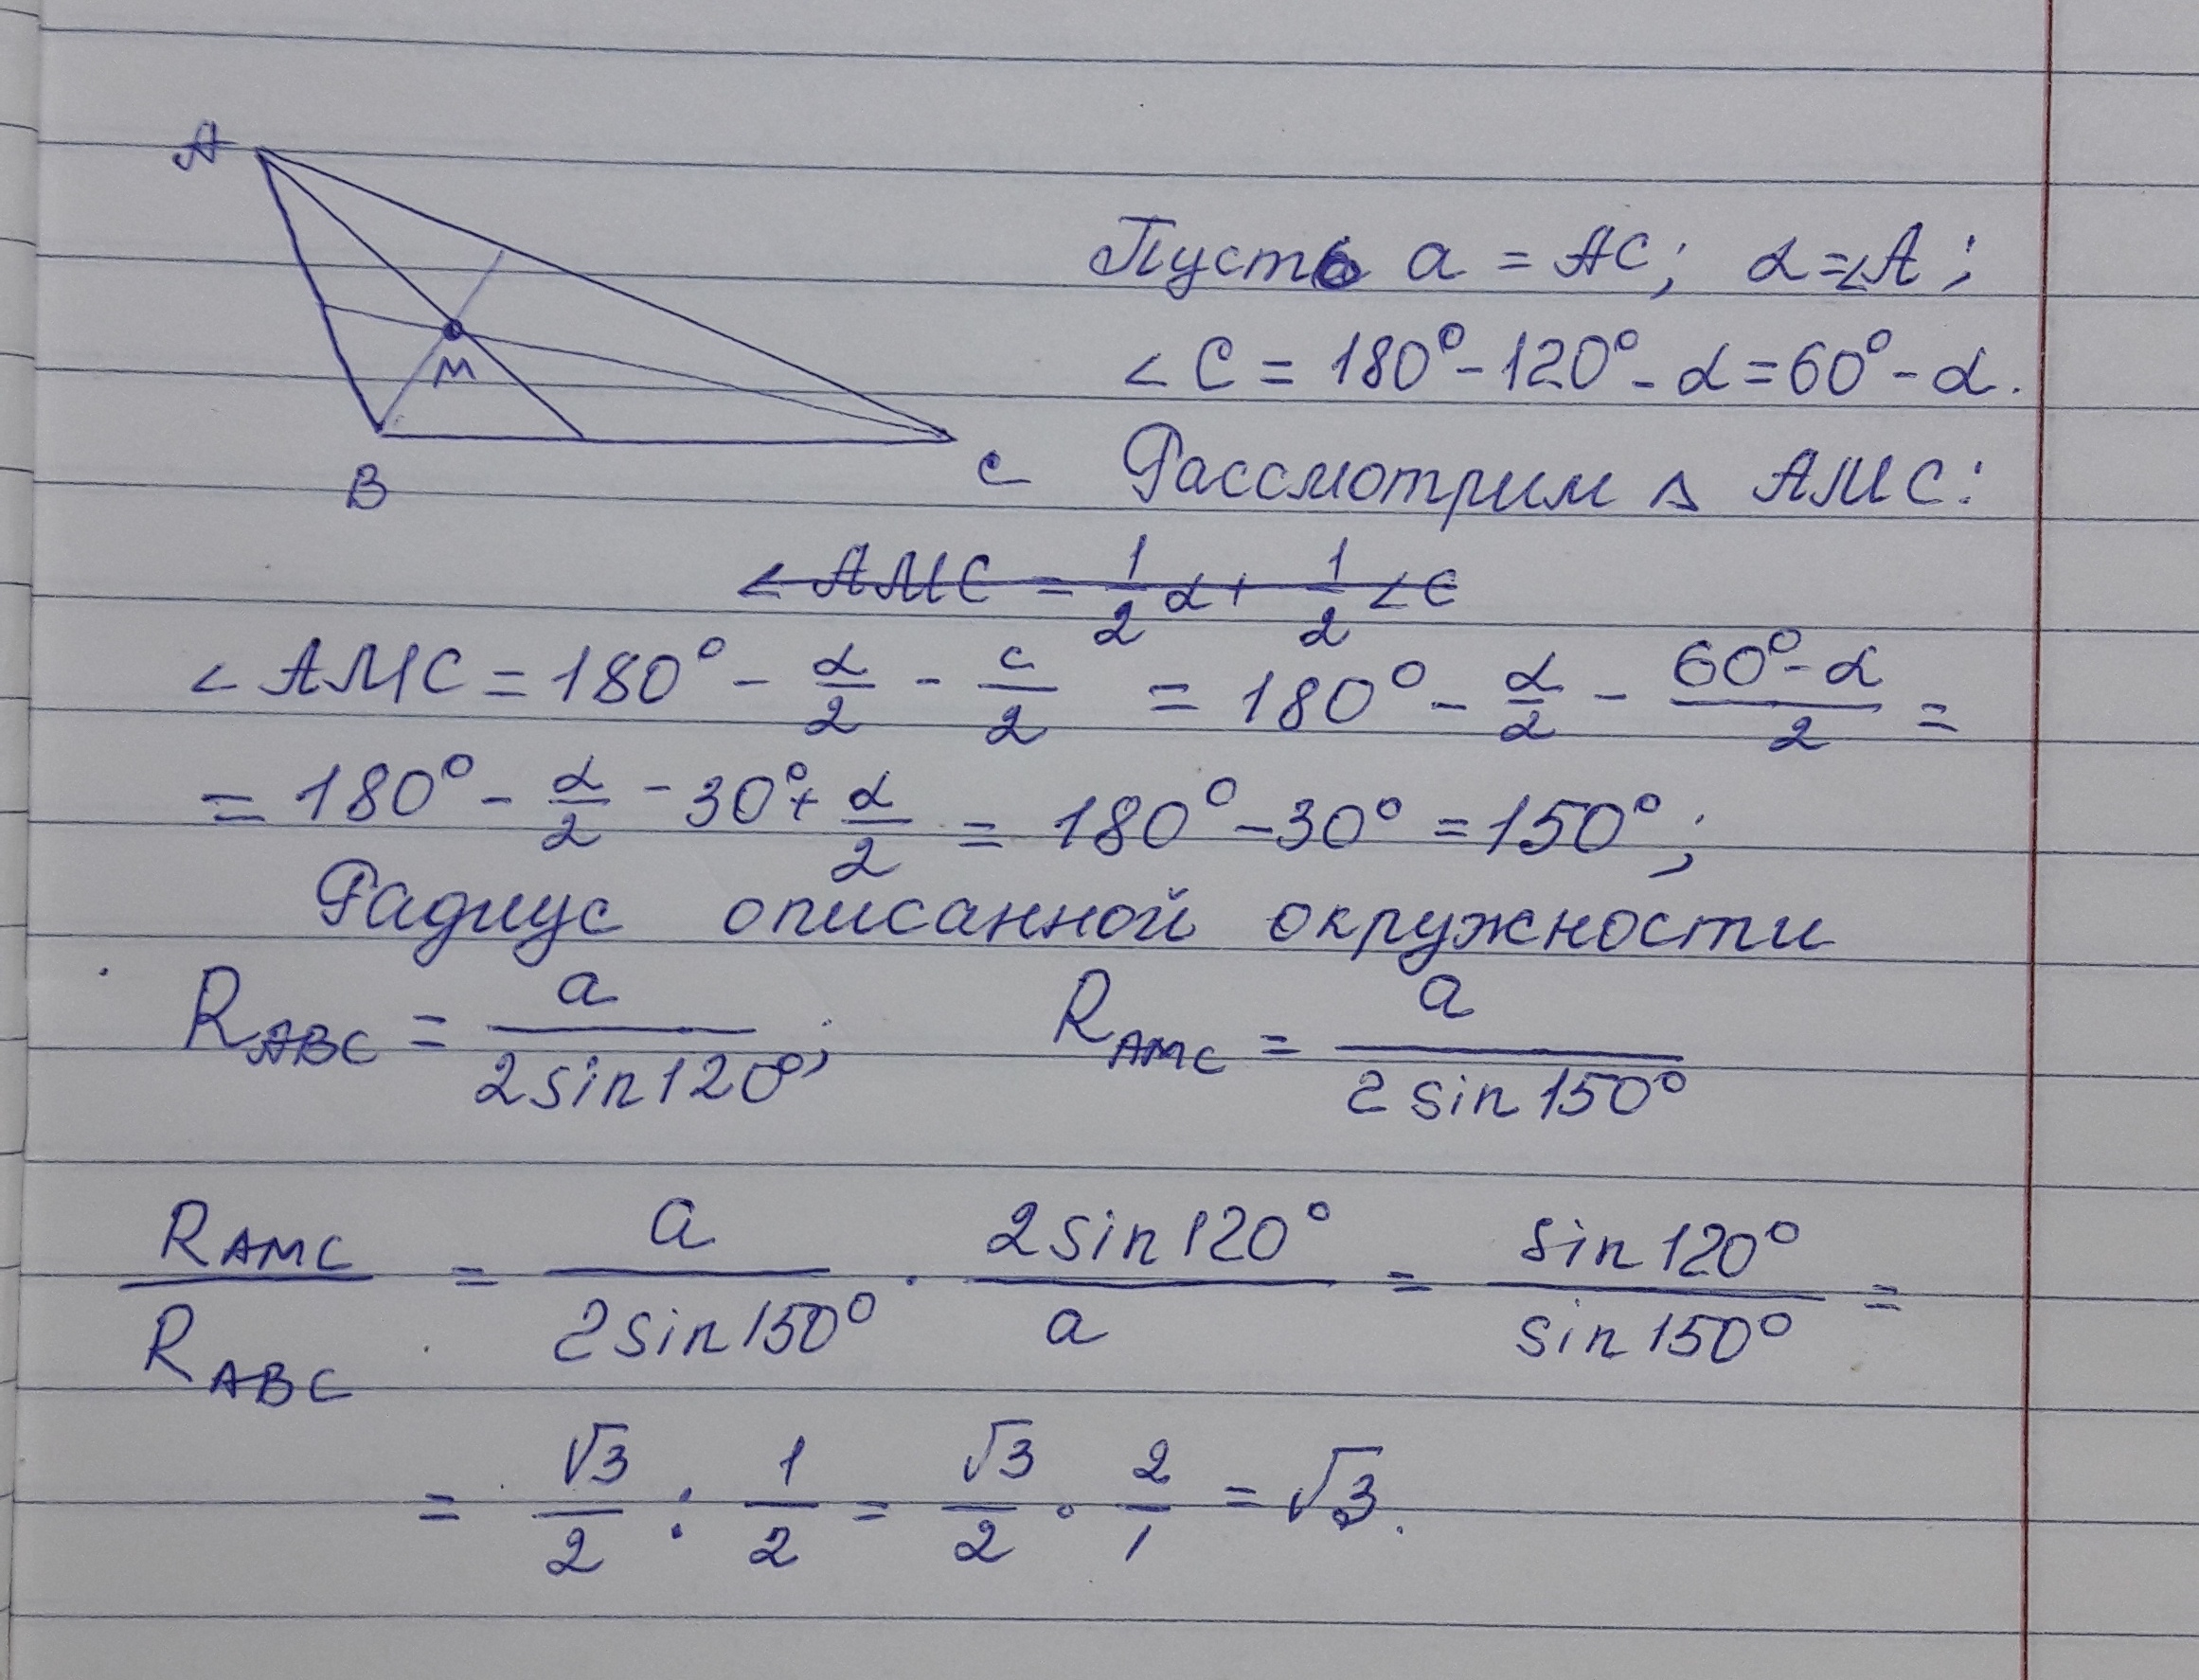 A
M
B
C
Пусть a = AC; α=∠A;
∠C = 180° - 120° - α = 60° - α.
Рассмотрим △ AMC:
∠AMC = 1/2 α + 1/2 ∠C
∠AMC = 180° - α/2 - c/2 = 180° - α/2 - (60° - α)/2 =
= 180° - α/2 - 30° + α/2 = 180° - 30° = 150°;
Радиус описанной окружности
R ABC = a/(2sin120°); R AMC = a/(2sin150°)
R AMC/R ABC = a/(2sin150°) · (2sin120°)/a = sin120°/sin150° =
= √3/2 : 1/2 = √3/2 · 2/1 = √3.